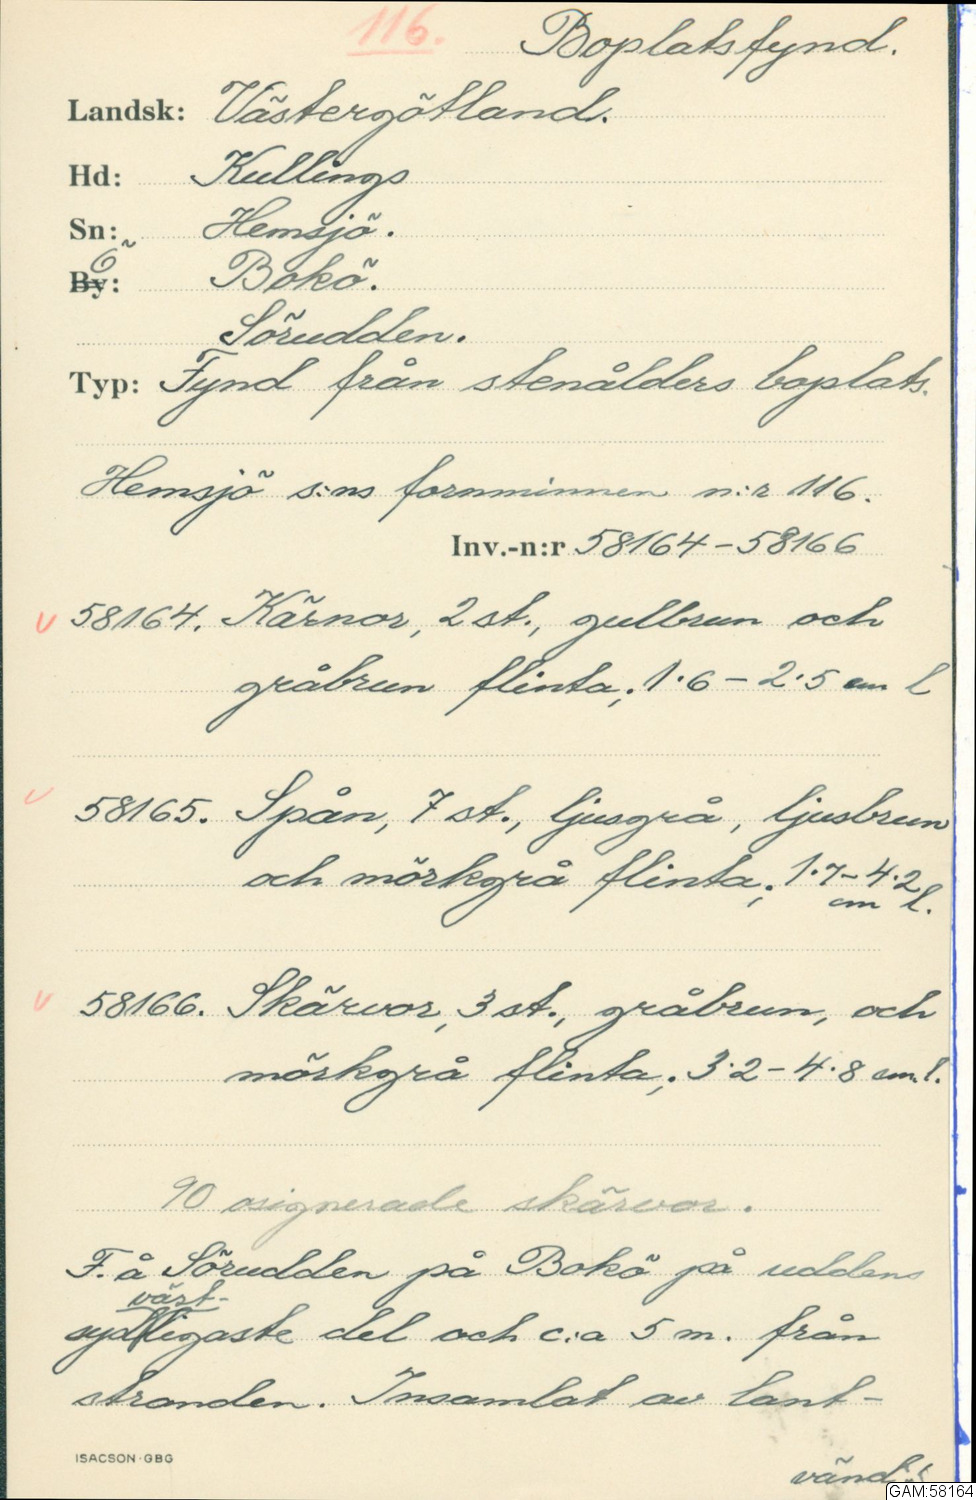 116. Boplatsfynd.
Landsk: Västergötland.
Hd: Kullings
Sn: Hemsjö.
By: Ö Bokö.
Sörudden.
Typ: Fynd från stenålders boplats.
Hemsjö s:ns fornminnen n:r 116.
Inv.-n:r 58164-58166
v 58164. Kärnor, 2 st., gulbrun och
gråbrun flinta; 1.6-2.5 cm l
v 58165. Spån, 7 st., ljusgrå, ljusbrun
och mörkgrå flinta; 1.7-4.2
cm l.
v 58166. Skärvor, 3 st., gråbrun, och
mörkgrå flinta; 3.2-4.8 cm. l.
90 osignerade skärvor.
F. å Sörudden på Bokö på uddens
väst-
sydligaste del och c:a 5 m. från
stranden. Insamlat av lant-
ISACSON·GBG
vänd!
GAM:58164